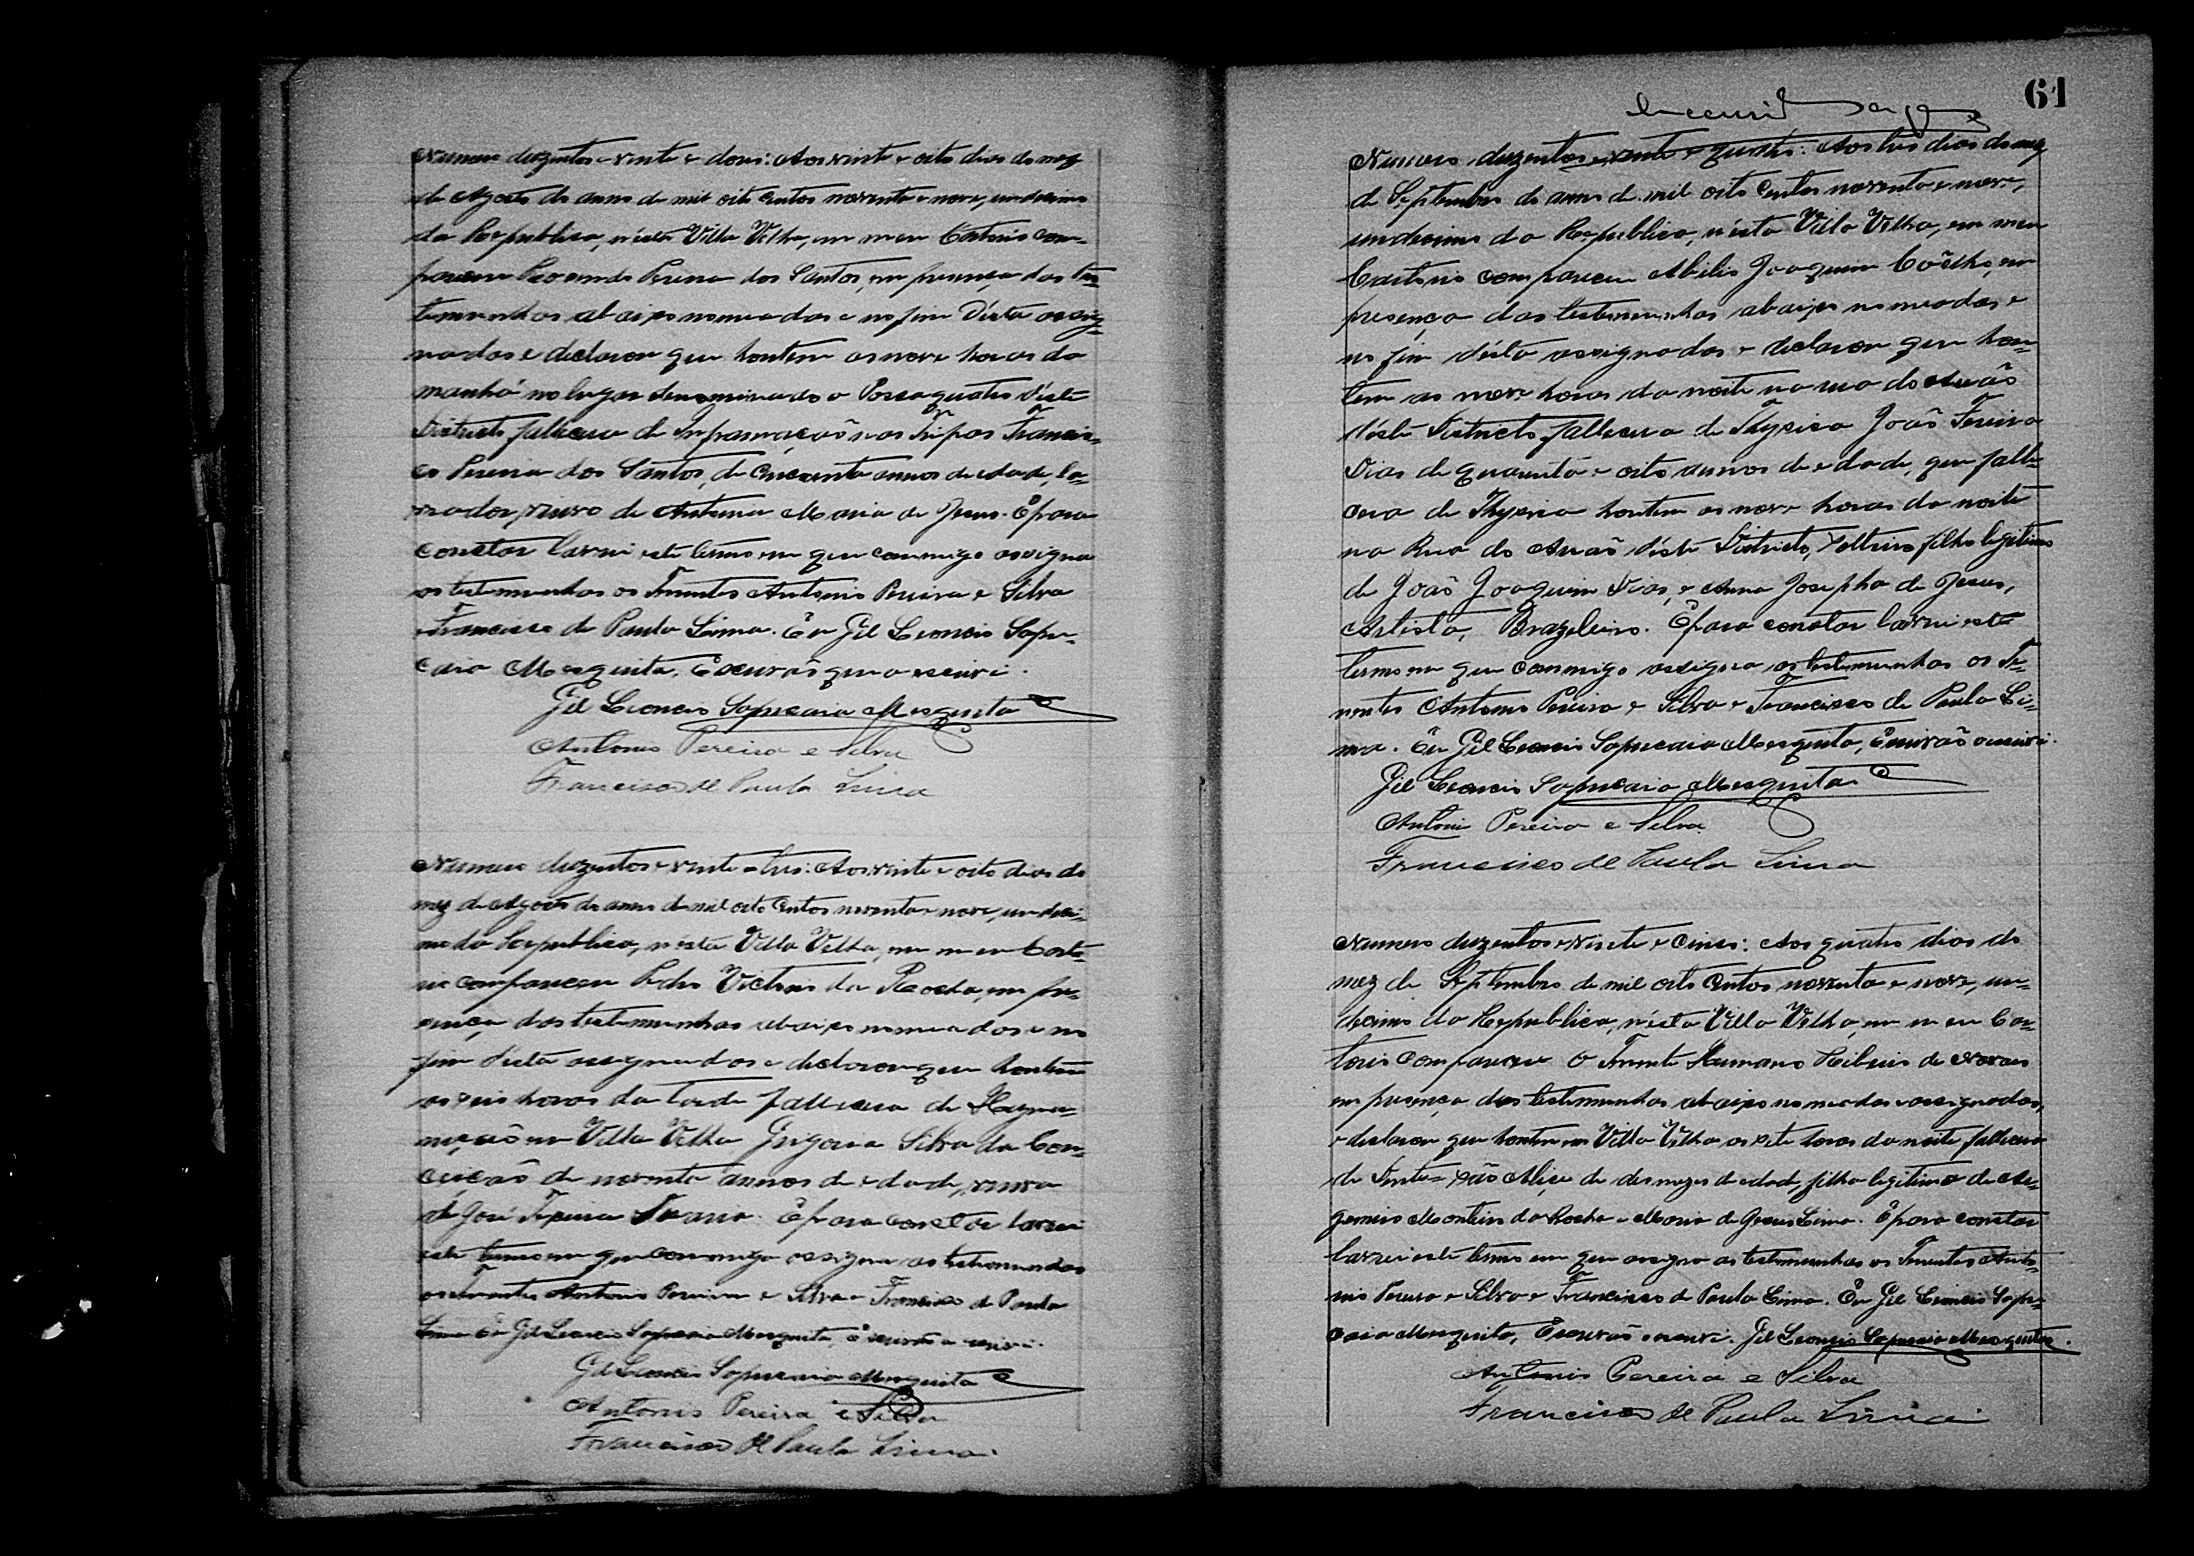 Numero duzentos e vinte e dous: Aos vinte e oito dias do mez
de Agosto do anno de mil oito centos noventa e nove, undecimo
da Republica, n'ésta Villa Velha, em meu Cartorio com-
pareceu Pereira dos Santos, em presença das tes-
temunhas abaixo nomeadas e no fim d'ésta assig-
nadas e declarou que hontem as nove horas da
manhã no lugar denominado o Passaquatro d'éste
Districto falleceu de Inflammação nas Tripas Francis-
co Pereira dos Santos, de cincoenta annos de edade, la-
vrador, viuvo de Antonia Maria de Jesus. E para
constar lavrei este termo em que commigo assigna
as testemunhas os Tenentes Antonio Pereira e Silva
e Francisco de Paula Lima. Eu Gil Leoncio Sapu-
caia Mesquita, Escrivão que o escrivi.
Gil Leoncio Sapucaia Mesquita
Antonio Pereira e Silva
Francisco de Paula Lima
Numero duzentos e vinte e tres: Aos vinte e oito dias do
mez de Agosto do anno de mil oito centos noventa e nove, undeci-
mo da Republica, n'ésta Villa Velha, em meu Carto-
rio compareceu Pedro Victorio da Rocha, em pre-
sença das testemunhas abaixo nomeadas e no
fim d'esta assignadas e declarou que hontem
as seis horas da tarde falleceu de
em Villa Velha Silva da Con-
ceição de noventa annos de edade, viuva
de José. E para constar lavrei
este termo em que commigo assigna as testemunhas
os Tenentes Antonio Pereira e Silva e Francisco de Paula
Lima Eu Gil Leoncio Sapucaia Mesquita, Escrivão o escrivi.
Gil Leoncio Sapucaia Mesquita
Antonio Pereira e Silva
Francisco de Paula Lima.
61
Numero duzentos e vinte e quatro: Aos tres dias do mez
de Septembro do anno de mil oito centos noventa e nove,
undecimo da Republica, n'ésta Villa Velha, em meu
Cartorio compareceu Abilio Joaquim Coêlho, em
presença das testemunhas abaixo nomeadas e
no fim désta assignadas e declarou que hon-
tem as nove horas da noite na rua do
d'éste Districto falleceu de Thysica João Pereira
Dias de quarenta e oito annos de edade, que falle-
ceu de Thysica hontem as nove horas da noite
na Rua do d'éste Districto, solteiro filho legitimo
de João Joaquim Dias, e Anna Josepha de Jesus,
Artista, Brazileiro. E para constar lavrei este
termo em que commigo assigna as testemunhas os Te-
nentes Antonio Pereira e Silva e Francisco de Paula Li-
ma. Eu Gil Leoncio Sapucaia Mesquita, Escrivão o escrivi.
Gil Leoncio Sapucaia Mesquita
Antonio Pereira e Silva
Francisco de Paula Lima
Numero duzentos e vinte e cinco: Aos quatro dias do
mez de Septembro de mil oito centos noventa e nove, un-
decimo da Republica, n'ésta Villa Velha, em meu Car-
torio compareceu o Tenente Ribeiro de Novaes
em presença das testemunhas abaixo nomeadas e assignadas,
e declarou que hontem em Villa Velha as sete horas da noite falleceu
de de mezes de edade, filha legitima de
Monteiro da Rocha e Maria de Jesus Lima. E para constar
lavrei este termo em que assigna as testemunhas os Tenentes Anto-
nio Pereira e Silva e Francisco de Paula Lima. Eu Gil Leoncio Sapu-
caia Mesquita, Escrivão o escrivi. Gil Leoncio Sapucaia Mesquita.
Antonio Pereira e Silva
Francisco de Paula Lima